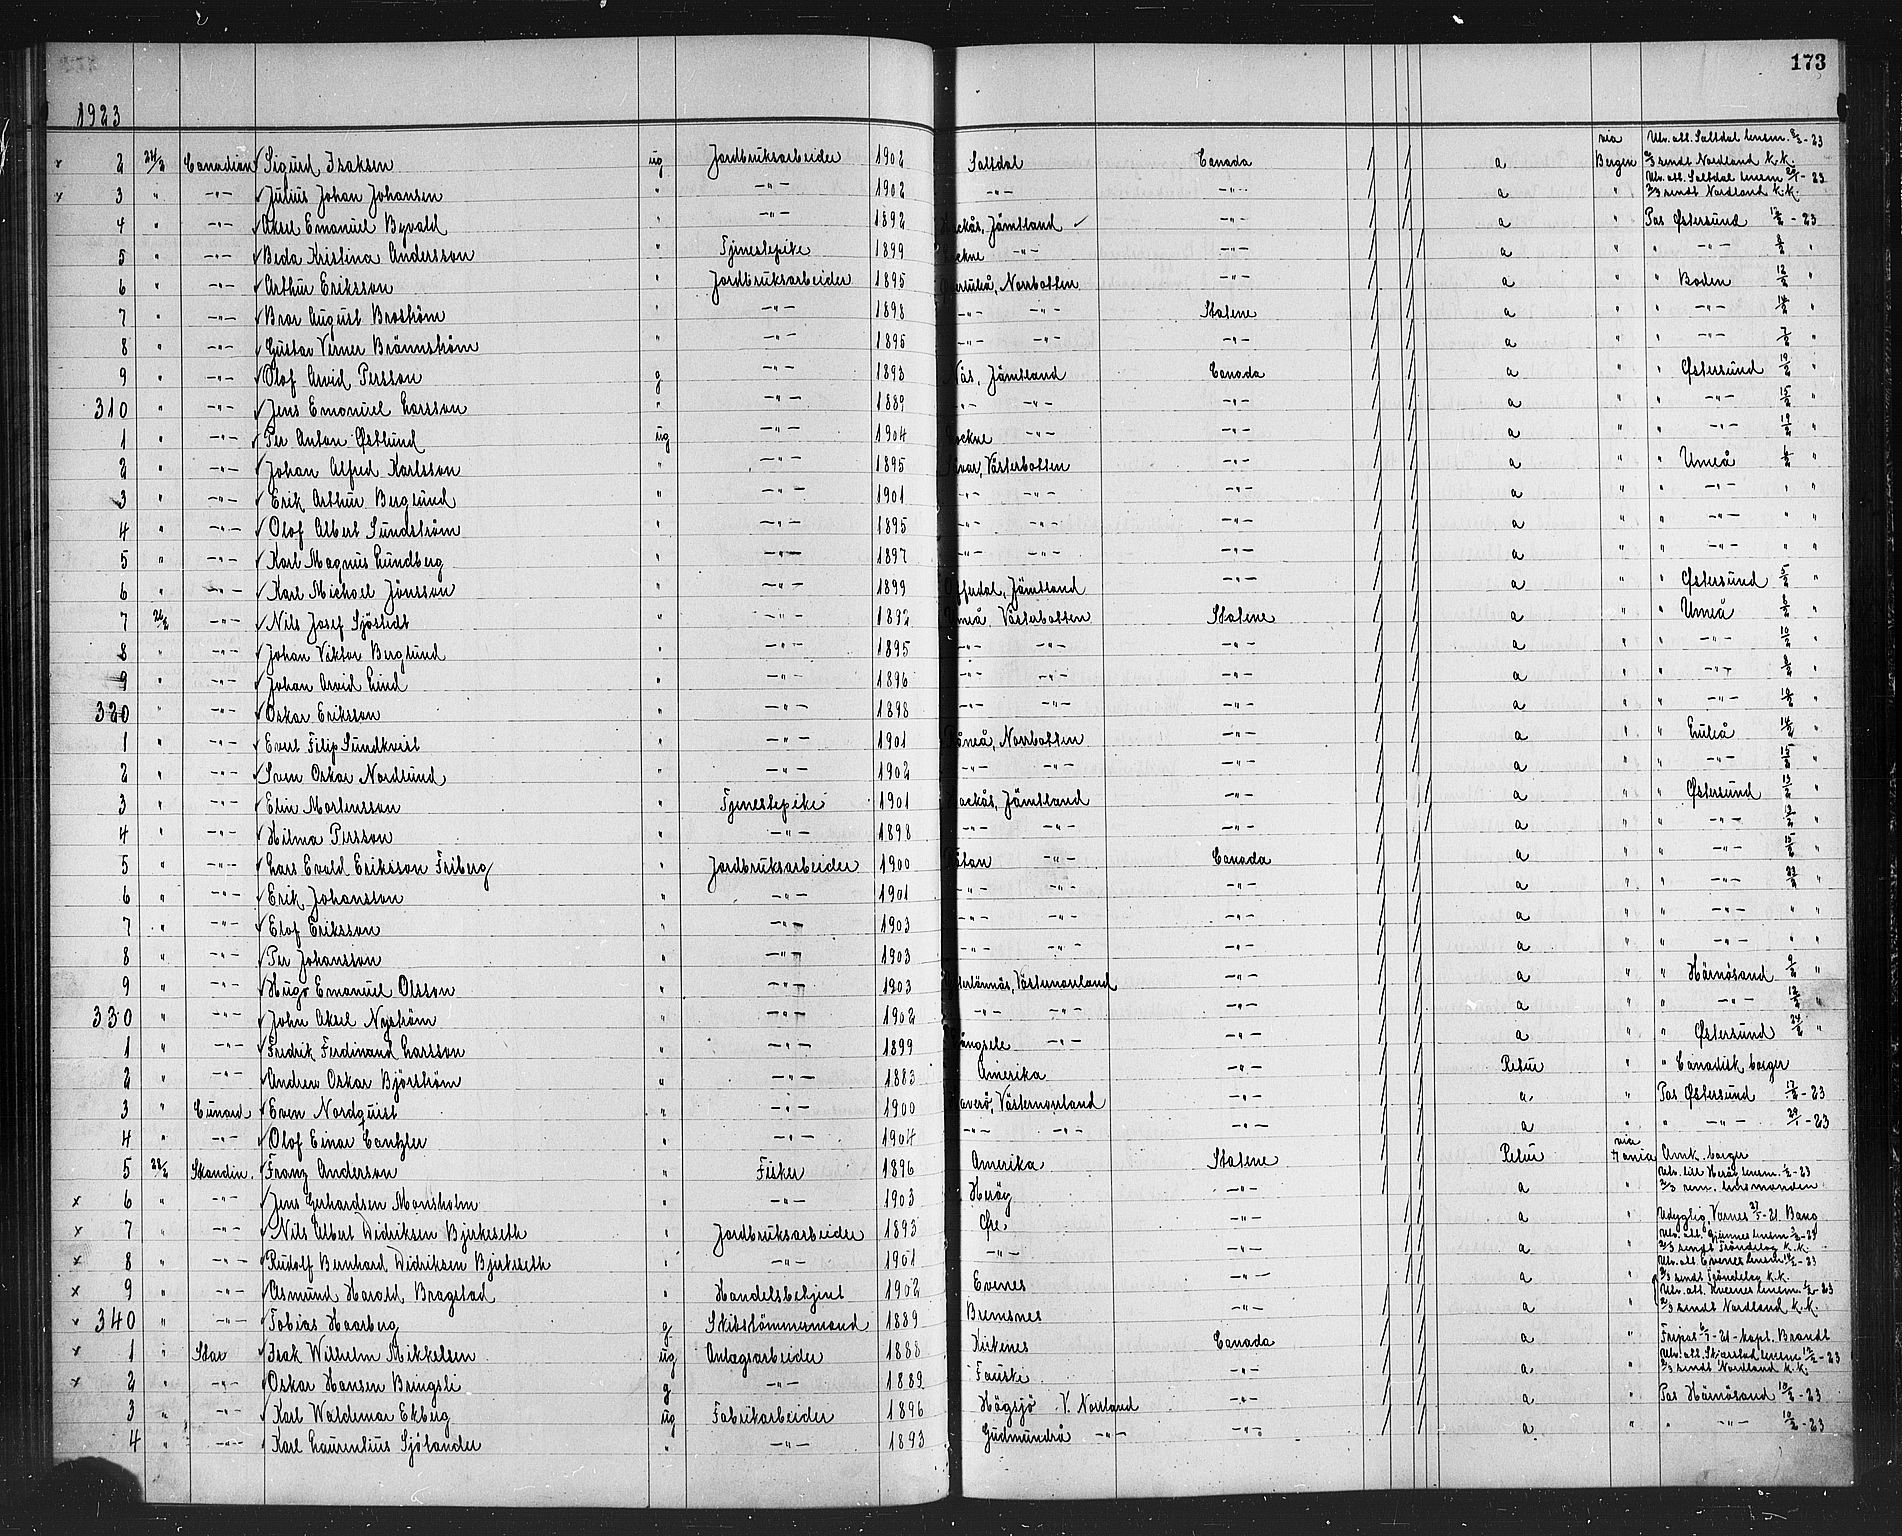 173
1923
2 24/2 Canadian Sigurd Isaksen ug Jordbruksarbeider 1902 Saltdal Canada a via Bergen Utv. att. Saltdal lensm. 8/2-23 2/3 sendt Nordland k.k.
3 " -"- Julius Johan Johansen " -"- 1902 -"- -"- a " Utv. att. Saltdal lensm 2/3 sendt Nordland k.k.
4 " -"- Aksel Emanuel Byvald -"- 1892 Jämtland -"- a " Pas Østersund 12/2-23
5 " -"- Beda Kristina Andersson " Tjenestepike 1899 -"- -"- a " " -"- "
6 " -"- Arthur Eriksson " Jordbruksarbeider 1895 Norrbotten -"- a " " Boden 12/2 "
7 " -"- Bror August Broström " -"- 1898 -"- -"- Statene a " " -"- "
8 " -"- Gustav Verner Brännström " -"- 1895 -"- -"- -"- a " " -"- "
9 " -"- Olof Arvid Persson g -"- 1893 Nås, Jämtland Canada a " " Østersund "
310 " -"- Jens Emanuel Larsson " -"- 1889 -"- -"- -"- a " " -"- 15/2 "
1 " -"- Per Anton Østlund ug -"- 1904 -"- -"- a " " -"- "
2 " -"- Johan Alfred Karlsson " -"- 1895 Västerbotten -"- a " " Umeå "
3 " -"- Erik Arthur Berglund " -"- 1901 -"- -"- -"- a " " -"- " "
4 " -"- Olof Albert Sundström " -"- 1895 -"- -"- -"- a " " -"- " "
5 " -"- Karl Magnus Lundberg " -"- 1897 -"- -"- -"- a " " -"- " "
6 " -"- Karl Michael Jönsson " -"- 1899 Jämtland -"- a " " Østersund 5/2 "
7 26/2 -"- Nils Josef Sjöstedt " -"- 1892 Västerbotten Statene a " " Umeå "
8 " -"- Johan Viktor Berglund " -"- 1895 -"- -"- -"- a " " -"- 10/2 "
9 " -"- Johan Arvid Lind " -"- 1896 -"- -"- -"- a " " -"- "
320 " -"- Oskar Eriksson " -"- 1898 -"- -"- -"- a " " -"- "
1 " -"- Evert Filip Sundkvist " -"- 1901 Råneå, Norrbotten -"- a " " Luleå "
2 " -"- Sven Oskar Nordlund " -"- 1902 -"- -"- -"- a " " -"- "
3 " -"- Elin Mortensson " Tjenestepike 1901 Jämtland -"- a " " Østersund "
4 " -"- Hilma Persson " -"- 1898 -"- -"- -"- a " " -"- "
5 " -"- Lars Evald Eriksson Friberg " Jordbruksarbeider 1900 -"- Canada a " " -"- "
6 " -"- Erik Johansson " -"- 1901 -"- -"- -"- a " " -"- "
7 " -"- Elof Eriksson " -"- 1903 -"- -"- -"- a " " -"- " "
8 " -"- Per Johansson " -"- 1903 -"- -"- -"- a " " -"- " "
9 " -"- Hugo Emanuel Olsson " -"- 1903 Västernorrland -"- a " " Härnösand 9/2 "
330 " -"- John Aksel Nyström " -"- 1902 -"- -"- -"- a " " -"- 12/2 "
1 " -"- Fredrik Ferdinand Larsson " -"- 1899 -"- -"- a " " Østersund "
2 " -"- Andrew Oskar Björström " -"- 1883 Amerika -"- Retur " " Canadisk borger
3 " Cunard Even Nordquist " -"- 1900 Haverö, Västernorrland -"- a " Pas Østersund 17/2-23
4 " -"- Olof Einar Cantzler " -"- 1904 -"- -"- -"- a " " -"- -23
5 28/2 Skandin. Franz Anderson " Fisker 1896 Amerika Statene Retur via Amk. borger
6 " -"- Jens Gerhardsen Mansholm " -"- 1903 Herøy -"- a " Utv. till Herøy lensm. 1/2-23 2/3 rem. lensmanden
7 " -"- Nils Albert Didriksen Bjerkeseth " Jordbruksarbeider 1893 Øre -"- a " Udyglig, Værnes 27/5-21. Bang
8 " -"- Rudolf Bernhard Didriksen Bjerkeseth " -"- 1901 -"- -"- a " Utv. att. Gjemnes lensm 2/3 sendt Trøndelag k.k.
9 " -"- Asmund Harald Bragstad " Handelsbetjent 1902 Evenes -"- a Utv. att. Evenes lensm. 2/3 sendt Trøndelag k.k.
340 " -"- Tobias Haarberg g Skibstømmermand 1889 Bremsnes -"- a " Utv. att. lensm. 2/3 sendt Nordland k.k.
1 " Star Isak Wilhelm Mikkelsen ug Anlægsarbeider 1888 Kirkenes Canada a " Fripas 6/7-21 - kapt. Brandt
2 " -"- Oskar Hansen Bringsli g -"- 1889 Fauske -"- a " Utv. att. Skjerstad lensm 12/2-23 2/3 sendt Nordland k.k.
3 " -"- Karl Waldemar Ekberg ug Fabrikarbeider 1896 Högsjö V. Norrland -"- a " Pas Härnösand 10/2-23
4 " -"- Karl Laurentius Sjölander " -"- 1893 Gudmundrå -"- -"- a " " -"- 10/2-23